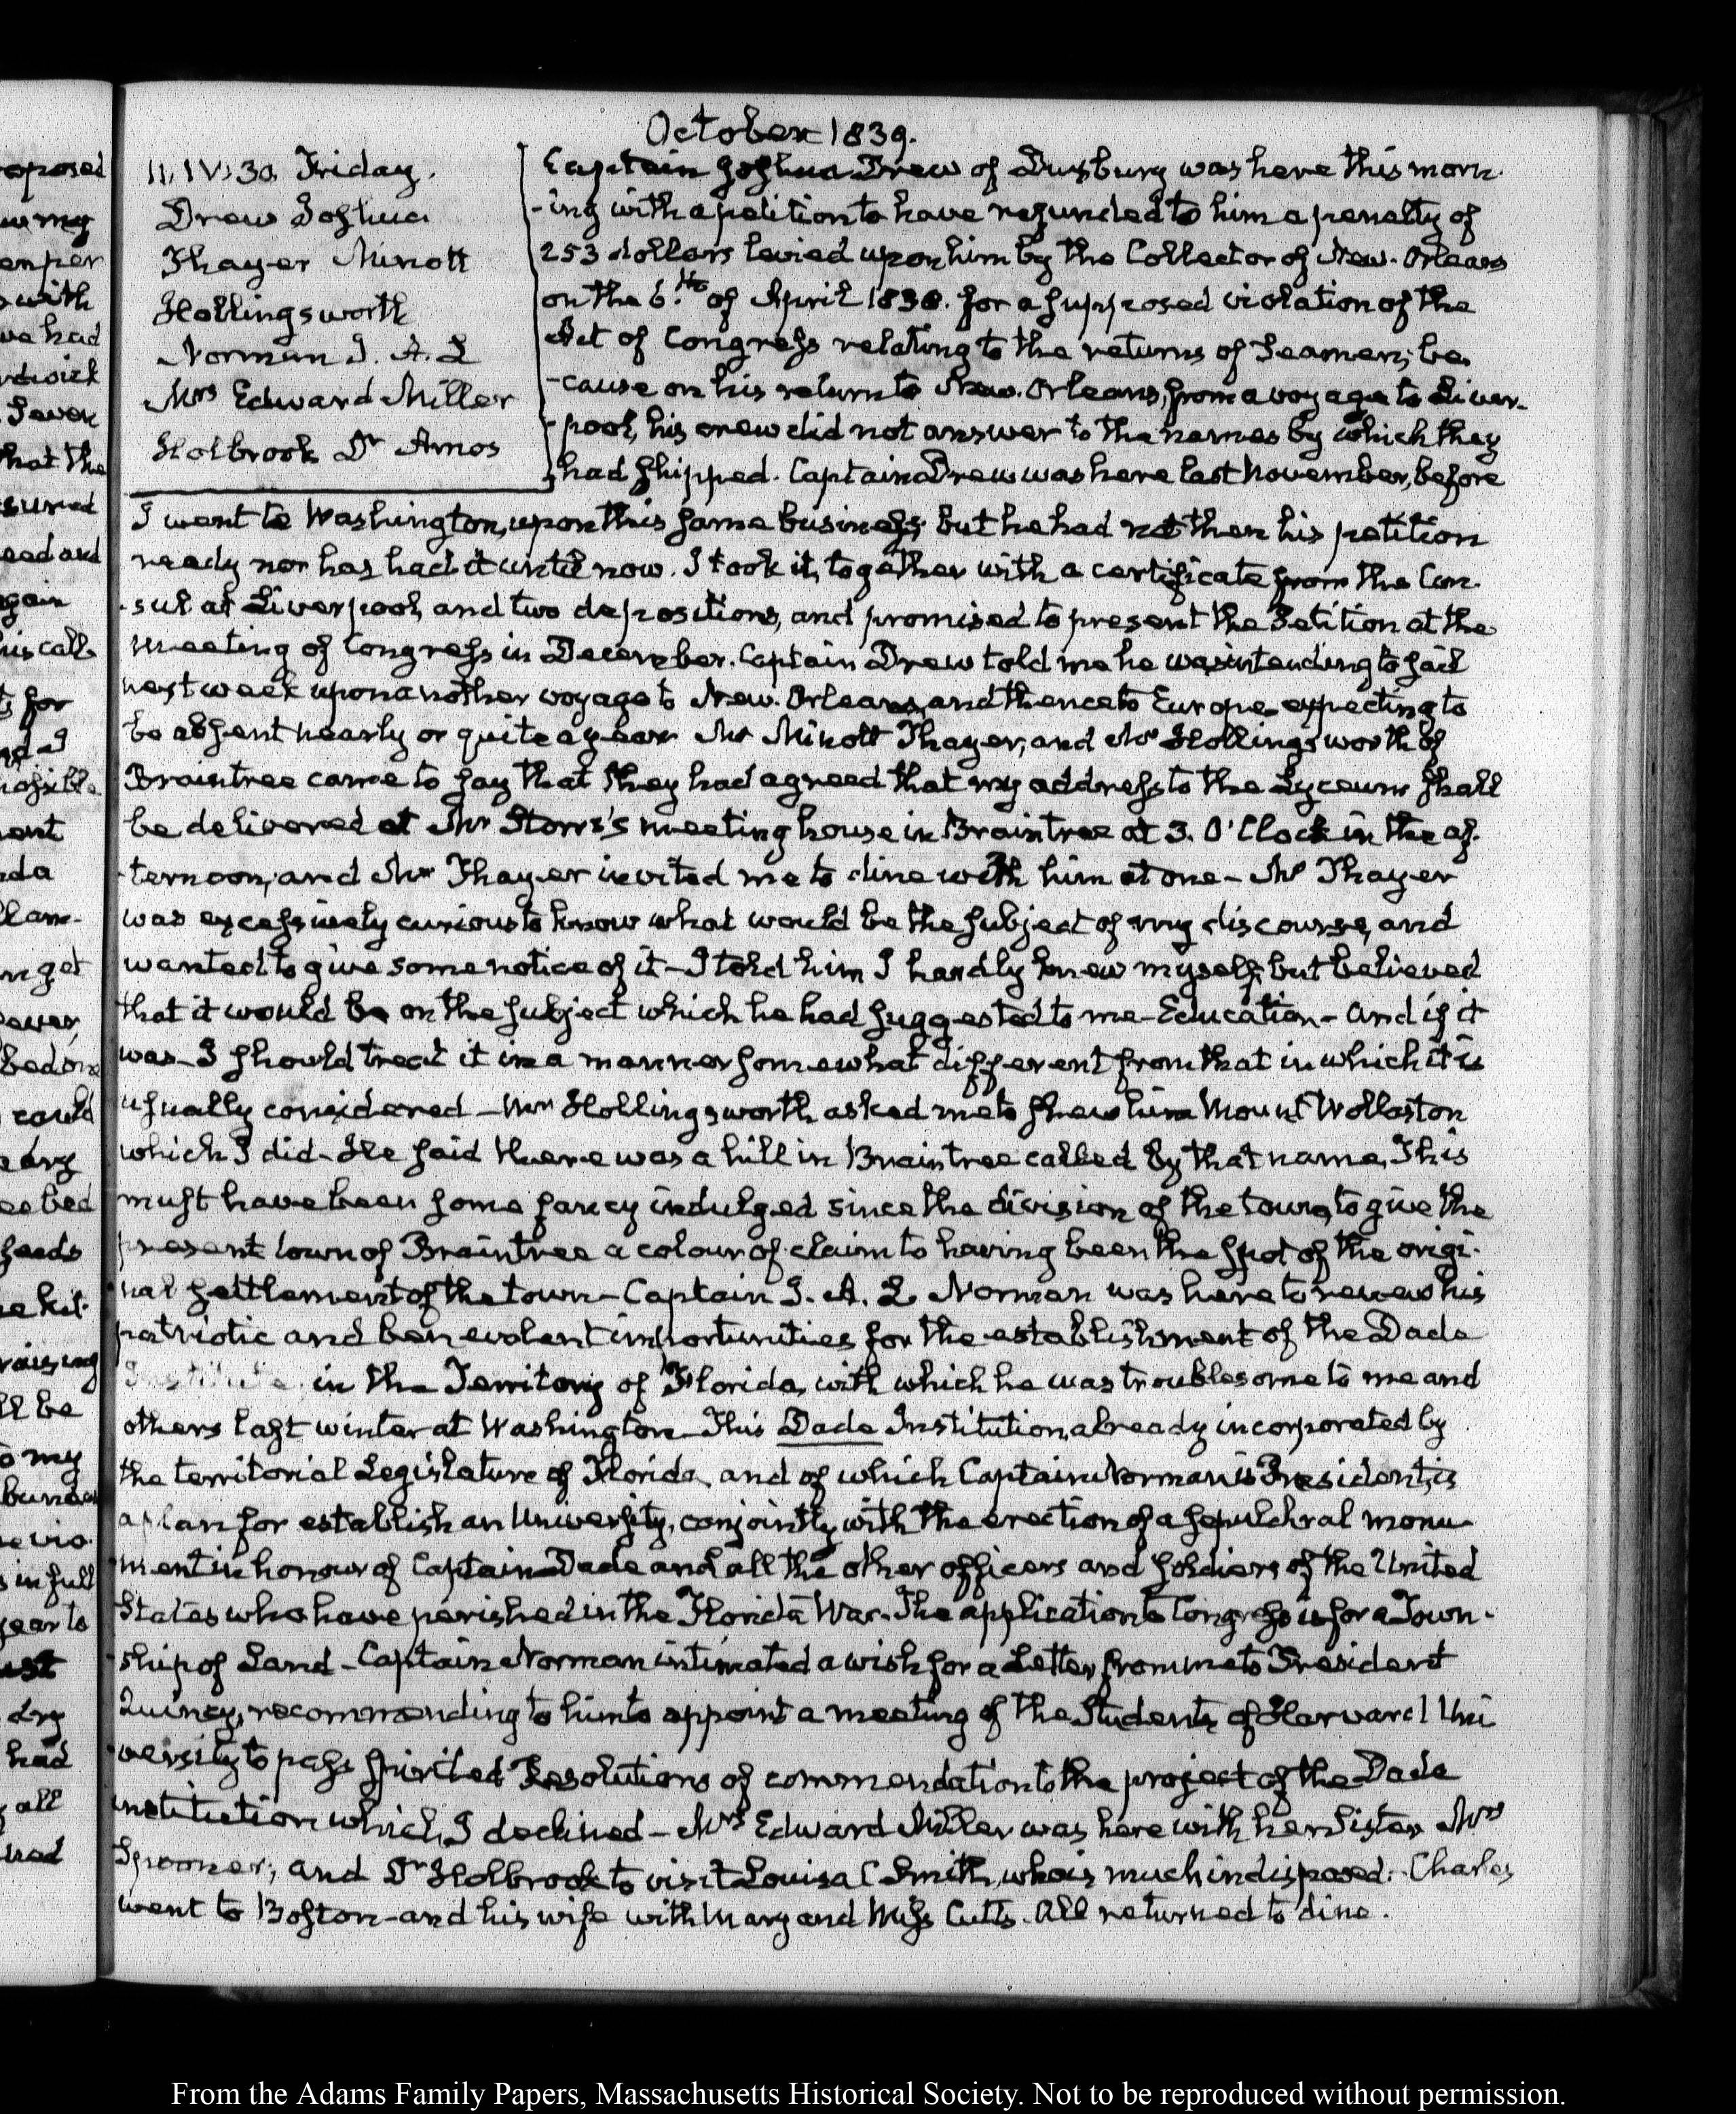 October 1839.
11. IV:30. Friday.
Drew Joshua
Thayer Minott
Hollingsworth
Norman J. A. L
Mrs Edward Miller
Holbrook Dr Amos
Captain Joshua Drew of Duxbury was here this morn-
-ing with a petition to have refunded to him a penalty of
253 dollars levied upon him by the Collector of New-Orleans
on the 6.th of April 1838. for a supposed violation of the
Act of Congress relating to the returns of Seamen; be
-cause on his return to New-Orleans, from a voyage to Liver-
-pool, his crew did not answer to the names by which they
had shipped. Captain Drew was here last November, before
I went to Washington, upon this same business; but he had not then his petition
ready nor has had it until now. I took it, together with a certificate from the Con-
-sul at Liverpool, and two depositions, and promised to present the Petition at the
meeting of Congress in December. Captain Drew told me he was intending to sail
next week upon another voyage to New-Orleans, and thence to Europe, expecting to
be absent nearly or quite a year Mr Minott Thayer, and Mr Hollingsworth of
Braintree came to say that they had agreed that my address to the Lyceum shall
be delivered at Mr Storrs's meeting house in Braintree at 3. O'Clock in the af-
-ternoon, and Mr Thayer invited me to dine with him at one - Mr Thayer
was excessively curious to know what would be the subject of my discourse, and
wanted to give some notice of it - I told him I hardly knew myself, but believed
that it would be on the subject which he had suggested to me - Education - and if it
was - I should treat it in a manner somewhat different from that in which it is
usually considered - Mr Hollingsworth asked me to shew him Mount Wollaston
which I did - He said there was a hill in Braintree called by that name. This
must have been some fancy indulged since the division of the town, to give the
present town of Braintree a colour of claim to having been the spot of the origi-
nal settlement of the town - Captain J. A. L Norman was here to renew his
patriotic and benevolent importunities for the establishment of the Dade
Institute, in the Territory of Florida, with which he was troublesome to me and
others last winter at Washington - This Dade Institution, already incorporated by
the territorial Legislature of Florida, and of which Captain Norman is President, is
a plan for establish an University, conjointly with the erection of a sepulchral monu-
ment in honour of Captain Dade and all the other officers and soldiers of the United
States who have perished in the Florida War. The application to Congress is for a Town-
-ship of Land - Captain Norman intimated a wish for a Letter from me to President
Quincy, recommending to him to appoint a meeting of the Students of Harvard Uni
versity to pass spirited Resolutions of commendation to the project of the Dade
institution which, I declined - Mrs Edward Miller was here with her Sister Mrs
Spooner; and Dr Holbrook to visit Louisa C Smith, who is much indisposed. Charles
went to Boston - and his wife with Mary and Miss Cutts. All returned to dine.
From the Adams Family Papers, Massachusetts Historical Society. Not to be reproduced without permission.